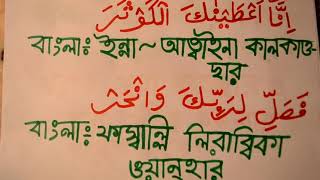 إِنَّا أَعْطَيْنٰكَ الْكَوْثَرَ
বাংলাঃ ইন্না~ আত্বাইনা কালকাও-
ছার
فَصَلِّ لِرَبِّكَ وَانْحَرْ
বাংলাঃ ফাস্বাল্লি লিরাব্বিকা
ওয়ান্হার